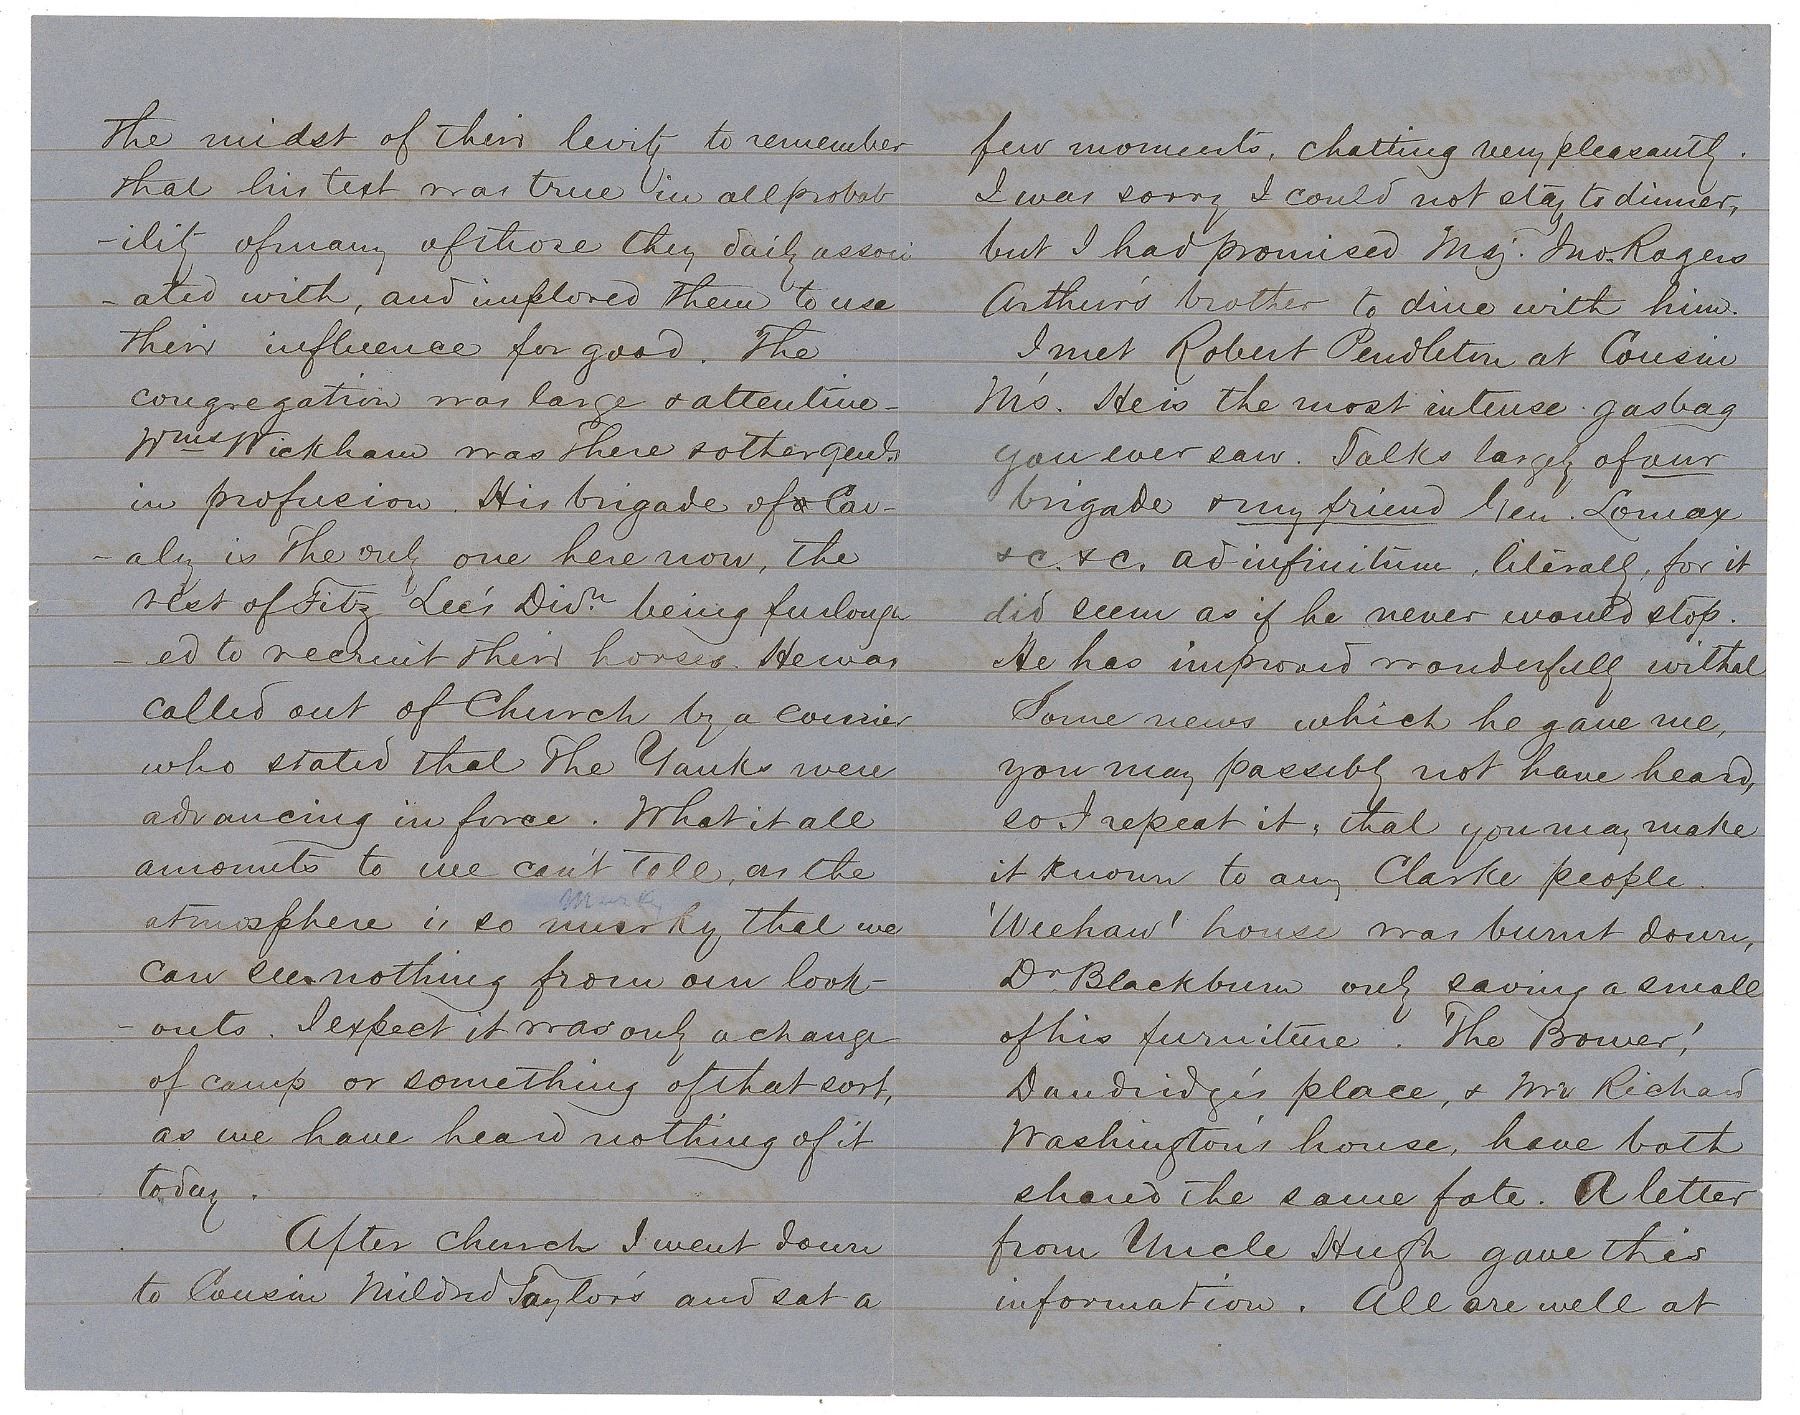 the midst of their levity to remember
that his text was true in all probab
-ility of many of those they daily associ
-ated with, and implored them to use
their influence for good. The
congregation was large & attentive -
Wms Wickham was there & other Genls
in profusion. His brigade of Cav-
-alry is the only one here now, the
rest of Fitz Lee's Divn being furlough
-ed to recruit their horses. He was
called out of Church by a courier
who stated that the Yanks were
advancing in force. What it all
amounts to we can't tell, as the
murky
atmosphere is so murky that we
can see nothing from our look-
-outs. I expect it was only a change
of camp or something of that sort,
as we have heard nothing of it
today.
After church I went down
to Cousin Mildred Taylor's and sat a
few moments, chatting very pleasantly.
I was sorry I could not stay to dinner,
but I had promised Maj. Jno. Rogers
Arthur's brother to dine with him.
I met Robert Pendleton at Cousin
M's. He is the most intense gasbag
you ever saw. Talks largely of our
brigade & my friend Gen. Lomax
&c. &c. ad infinitum, literally, for it
did seem as if he never would stop.
He has improved wonderfully withal
Some news which he gave me,
you may possibly not have heard,
so I repeat it, that you may make
it known to any Clarke people.
'Weehaw' house was burnt down,
Dr. Blackburn only saving a small
of his furniture. 'The Bower',
Dandridge's place, & Mr Richard
Washington's house, have both
shared the same fate. A letter
from Uncle Hugh gave this
information. All are well at